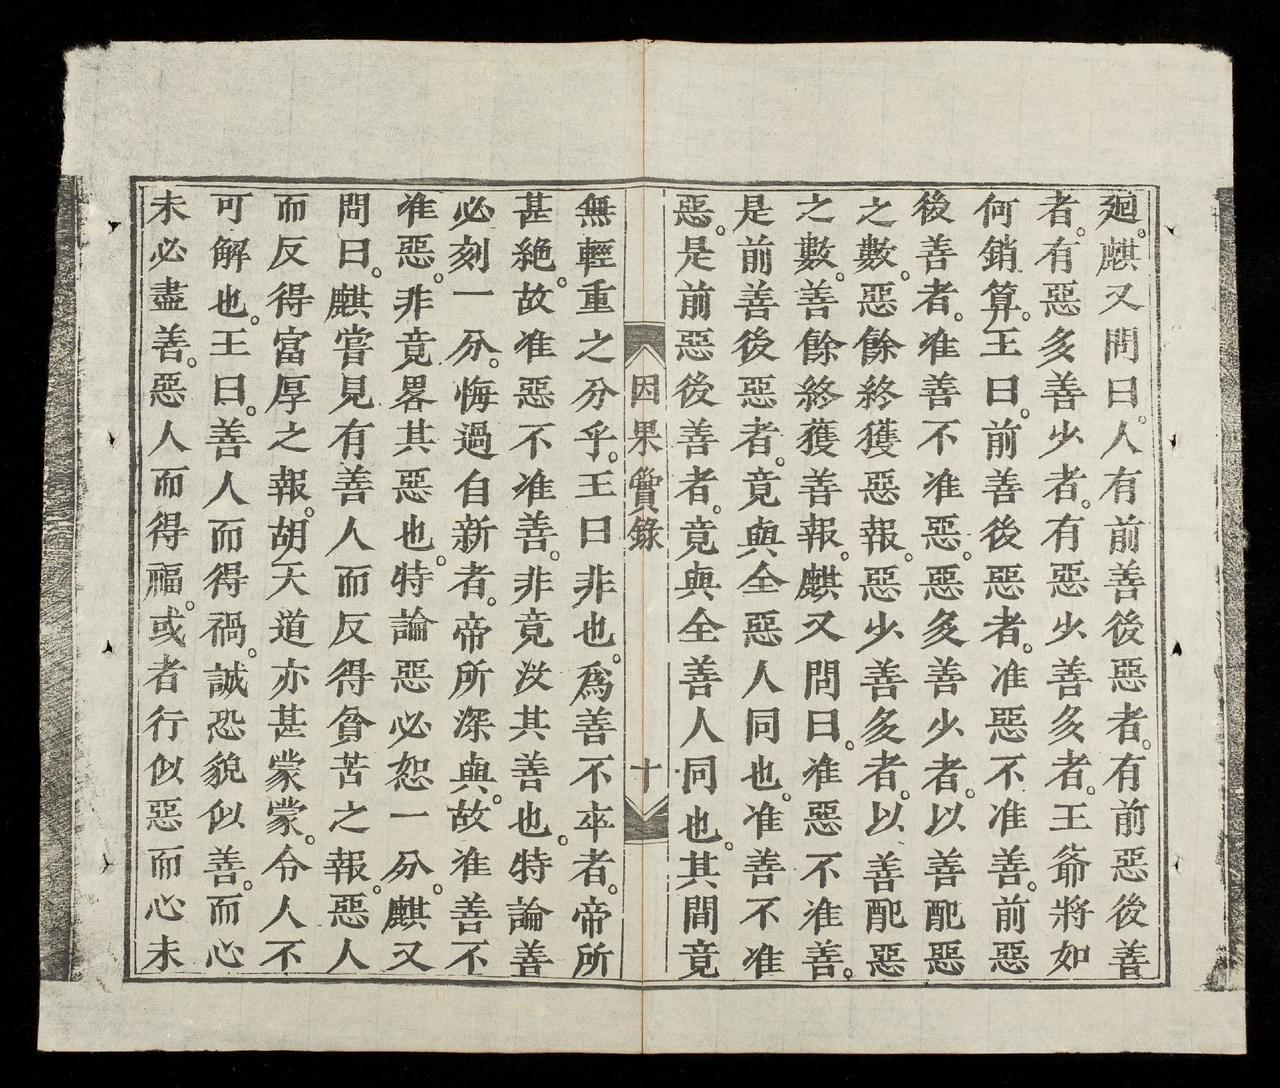 廻。麒又問曰。人有前善後惡者。有前惡後善
者。有惡多善少者。有惡少善多者。王爺將如
何銷算。王曰。前善後惡者。准惡不准善。前惡
後善者。准善不准惡。惡多善少者。以善配惡
之數。惡餘終獲惡報。惡少善多者。以善配惡
之數。善餘終獲善報。麒又問曰。准惡不准善。
是前善後惡者。竟與全惡人同也。准善不准
惡。是前惡後善者。竟與全善人同也。其間竟
因果實錄 十
無輕重之分乎。王曰非也。為善不卒者。帝所
甚絶。故准惡不准善。非竟沒其善也。特論善
必刻一分。悔過自新者。帝所深與。故准善不
准惡。非竟畧其惡也。特論惡必恕一分。麒又
問曰。麒嘗見有善人而反得貧苦之報。惡人
而反得富厚之報。胡天道亦甚蒙蒙。令人不
可解也。王曰。善人而得禍。誠恐貌似善。而心
未必盡善。惡人而得福。或者行似惡而心未